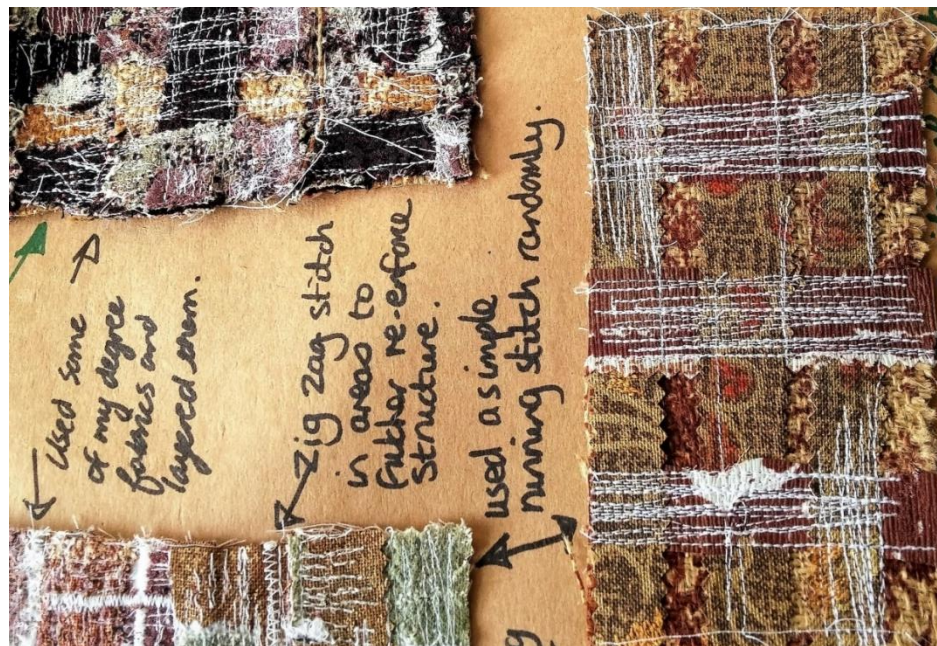 used some
of my degree
fabrics and
layered them.
zig zag stitch
in areas to
further re-enforce
structure.
used a simple
running stitch randomly.